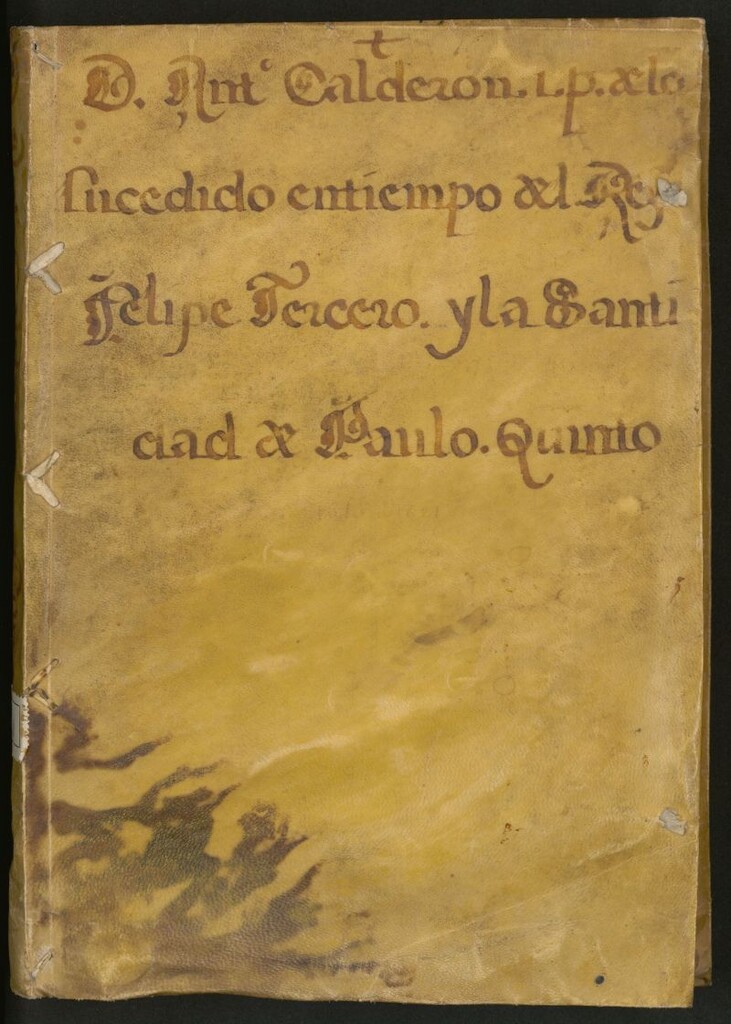 †
D. Antº Calderon. 1. p. de lo
sucedido en tiempo del Rey
Felipe Tercero. y la Santi
dad de Paulo. Quinto